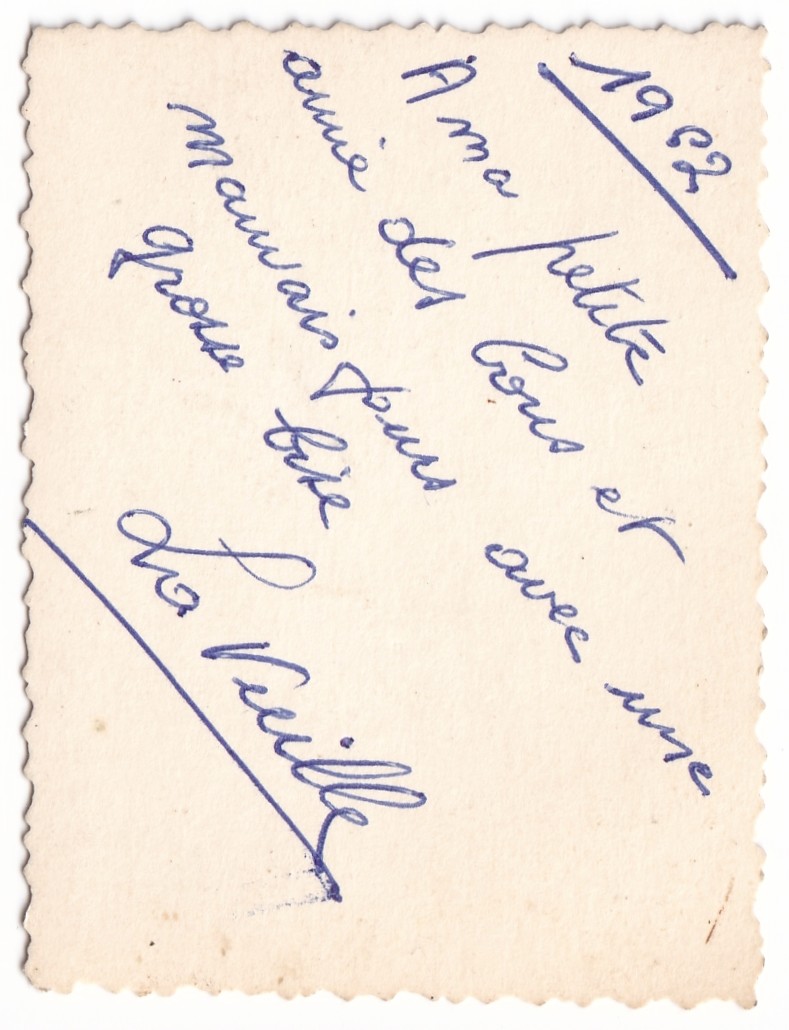 1962
A ma petite
amie des bons et
mauvais jours avec une
grosse bise
La Vieille